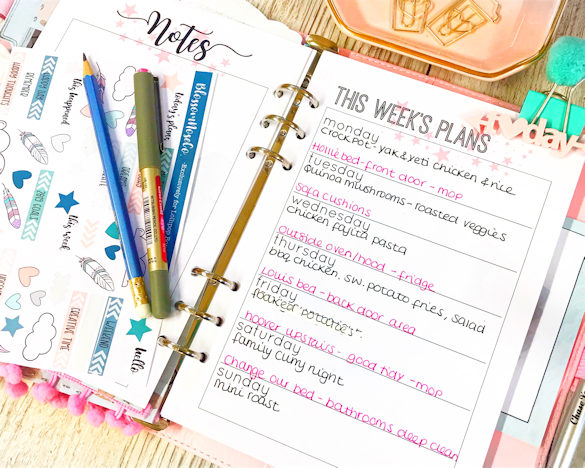 Notes
WARM THOUGHTS
REMEMBER
this happened
today's plans
Blossomtastic
BIG GOALS
this week
CREATIVE TIME
hello
THIS WEEK'S PLANS
monday
crockpot - yak & yeti chicken & rice
Hollie bed - front door - mop
tuesday
quinoa mushrooms - roasted veggies
sofa cushions
wednesday
chicken fajita pasta
Outside oven/hood - fridge
thursday
bbq chicken. sw. potato fries, salad
Louis bed - back door area
friday
loaded potatoes
hoover upstairs - good tidy - mop
saturday
family curry night
Change our bed - bathrooms deep clean
sunday
mini roast
today